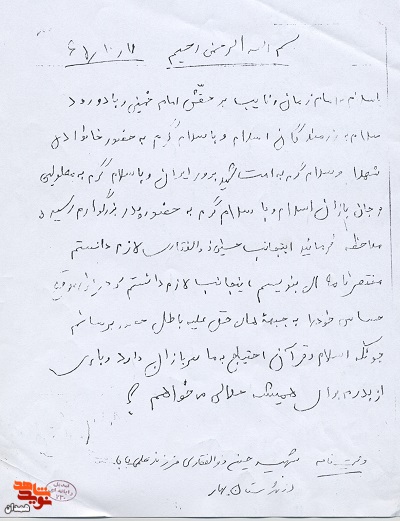 بسم الله الرحمن رحیم
با سلام به امام زمان و نایب بر حقش امام خمینی و با درود
سلام به رزمندگان اسلام و با سلام گرم به حضور خانواده
شهدا و سلام گرم به امت شهید پرور ایران و با سلام گرم به معلولین
و جانبازان اسلام و با سلام گرم به حضور پدر بزرگوارم رسید
ملاحظه فرمائید اینجانب حسین ذوالفقاری لازم دانستم
مختصر نامه بنویسم اینجانب لازم دانستم که در این موقع
حساس خود را به جبهه های حق علیه باطل برسانم
چونکه اسلام و قرآن احتیاج به ما سربازان دارد و
از پدرم برای همیشه حلالی می خواهم
وصیت نامه شهید حسین ذوالفقاری فرزند علی بابا
نوید شاهد